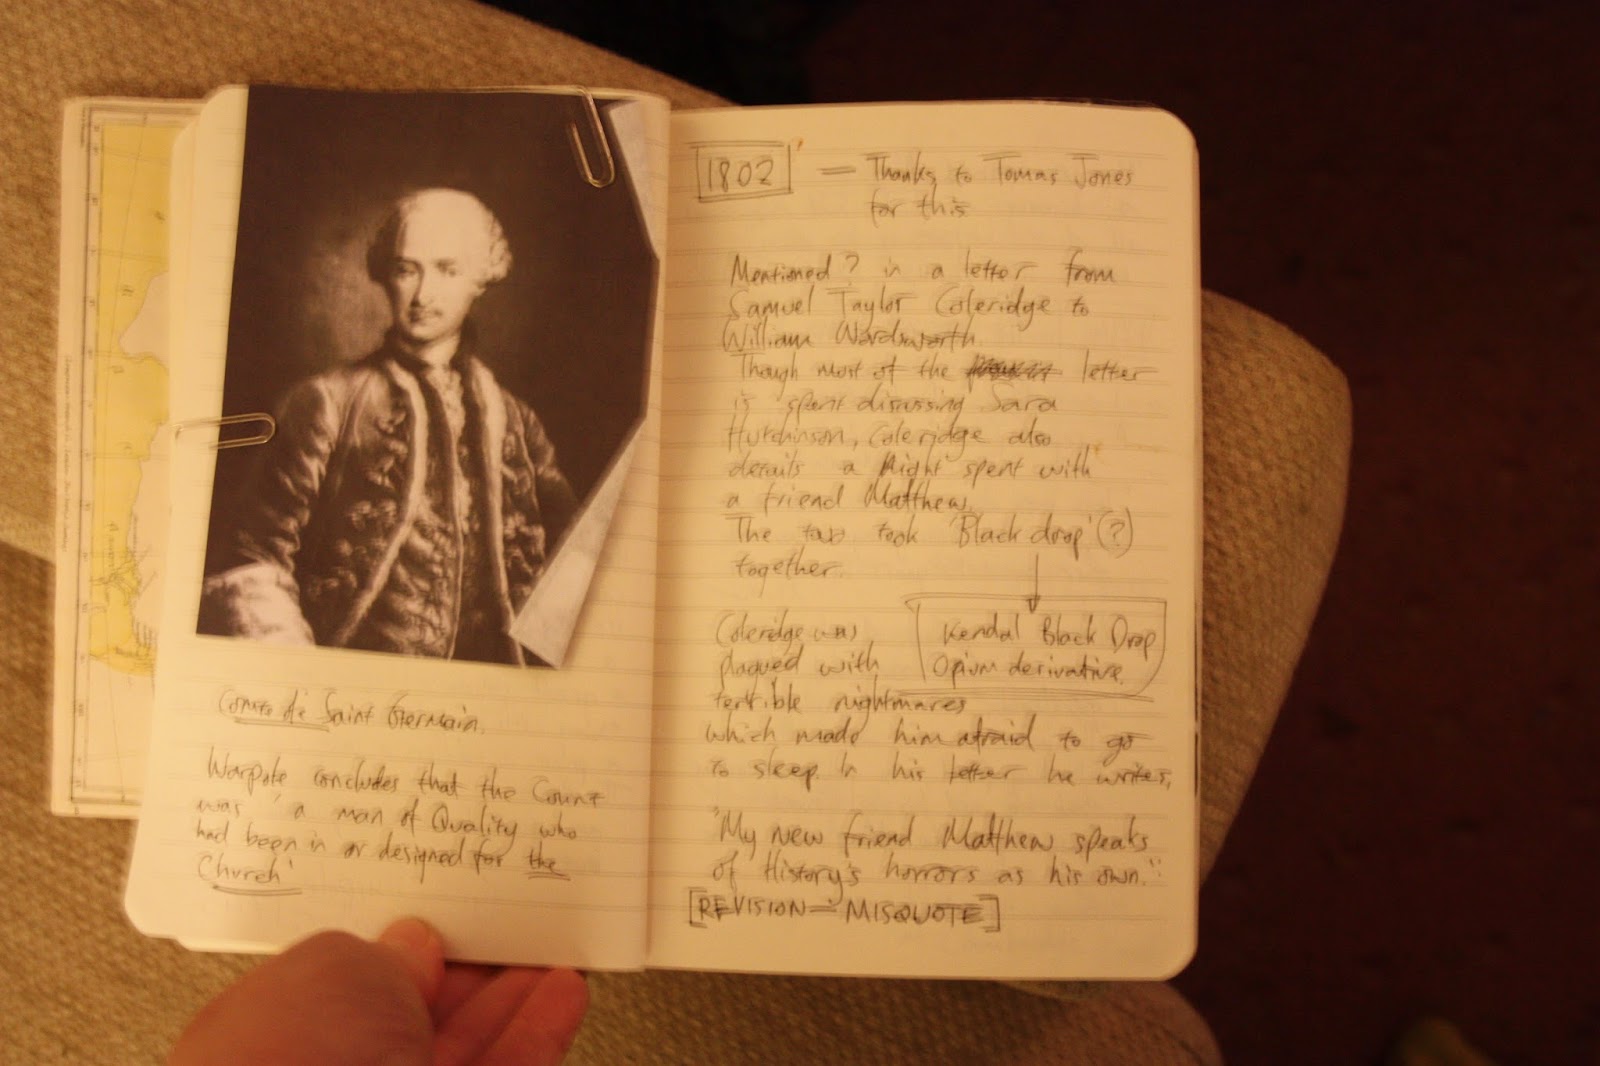 Comte de Saint Germain.
Warpole concludes that the Count
was 'a man of Quality who
had been in or designed for the
Church'
1802 — Thanks to Tomas Jones
for this
Mentioned? in a letter from
Samuel Taylor Coleridge to
William Wordsworth.
Though most of the letter
is spent discussing Sara
Hutchinson, Coleridge also
details a Night spent with
a friend Matthew.
The two took 'Black drop' (?)
together.
Kendal Black Drop
Opium derivative.
Coleridge was
plagued with
terrible nightmares
which made him afraid to go
to sleep. In his letter he writes,
"My new friend Matthew speaks
of History's horrors as his own."
[REVISION — MISQUOTE]